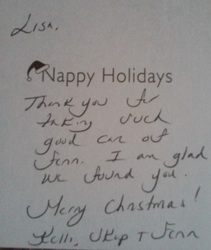 Lisa,
Happy Holidays
Thank you for
taking such
good care of
Jenn. I am glad
we found you.
Merry Christmas!
Kelli, Skip + Jenn